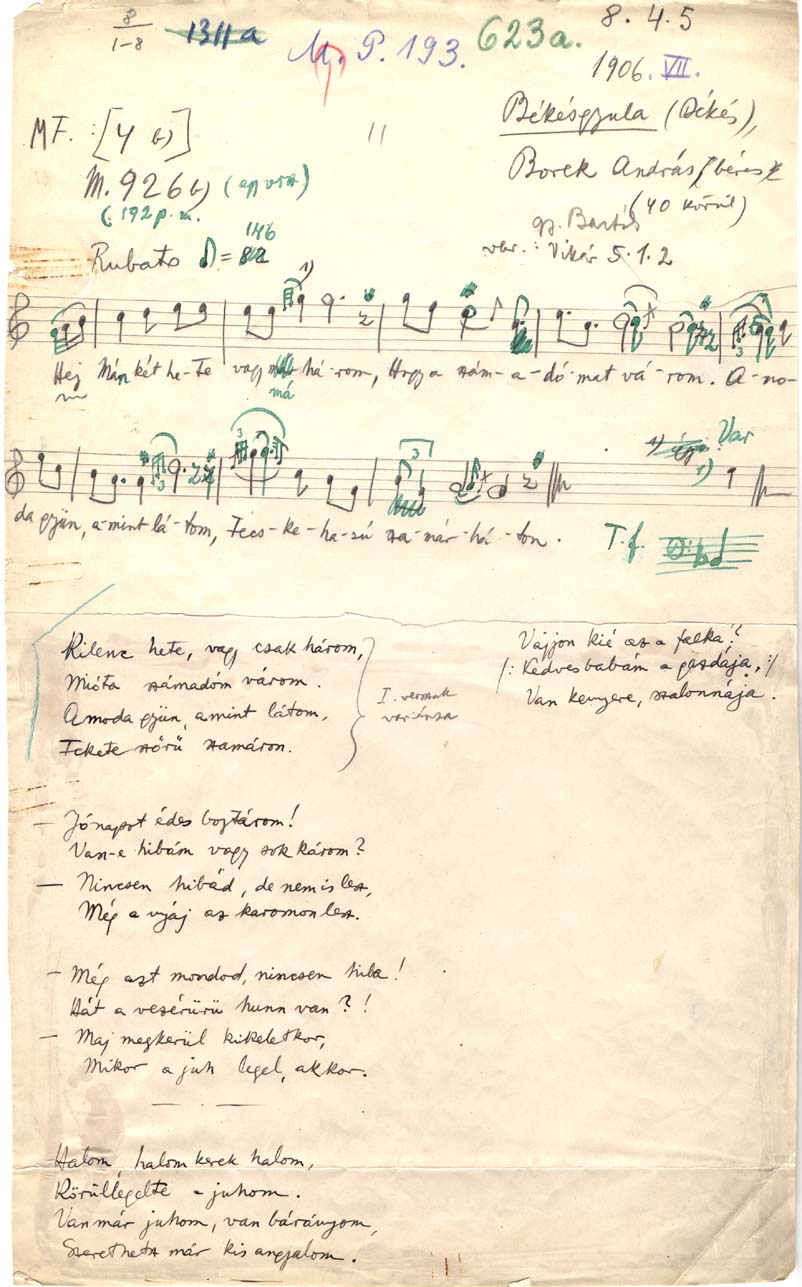 8/1-8
1311a
M. P. 193.
623a.
8. 4. 5
1906. VII.
MF. : [4 b)]
M. 926 b) (egy vsz.)
(192 p. u.
Békésgyula (Békés),
Borek András, béres
(40 körül)
gy. Bartók
var. : Vikár 5.1.2
Rubato ♪ = 146
Hej Mán két he-te vagy má há-rom, Hogy a szám-a-dó-mat vá-rom. A-no-
da gyün, a-mint lá-tom, Fecs-ke-ha-sú sza-már-há-ton.
1) Var
T. f.
Kilenc hete, vagy csak három,
Mióta számadóm várom.
Amoda gyün, amint látom,
Fekete szőrű szamáron.
I. versnek
variánsa
— Jónapot édes bojtárom!
Van-e hibám vagy sok károm?
— Nincsen hibád, de nem is lesz,
Még a nyáj az karomon lesz.
— Még azt mondod, nincsen hiba!
Hát a vezérürü hunn van?!
— Maj megkerül kikeletkor,
Mikor a juh legel, akkor.
Halom, halom kerek halom,
Körüllegelte a juhom.
Van már juhom, van bárányom,
Szerethetsz már kis angyalom.
Vajjon kié az a falka?
/: Kedvesbabám a gazdája, :/
Van kenyere, szalonnája.